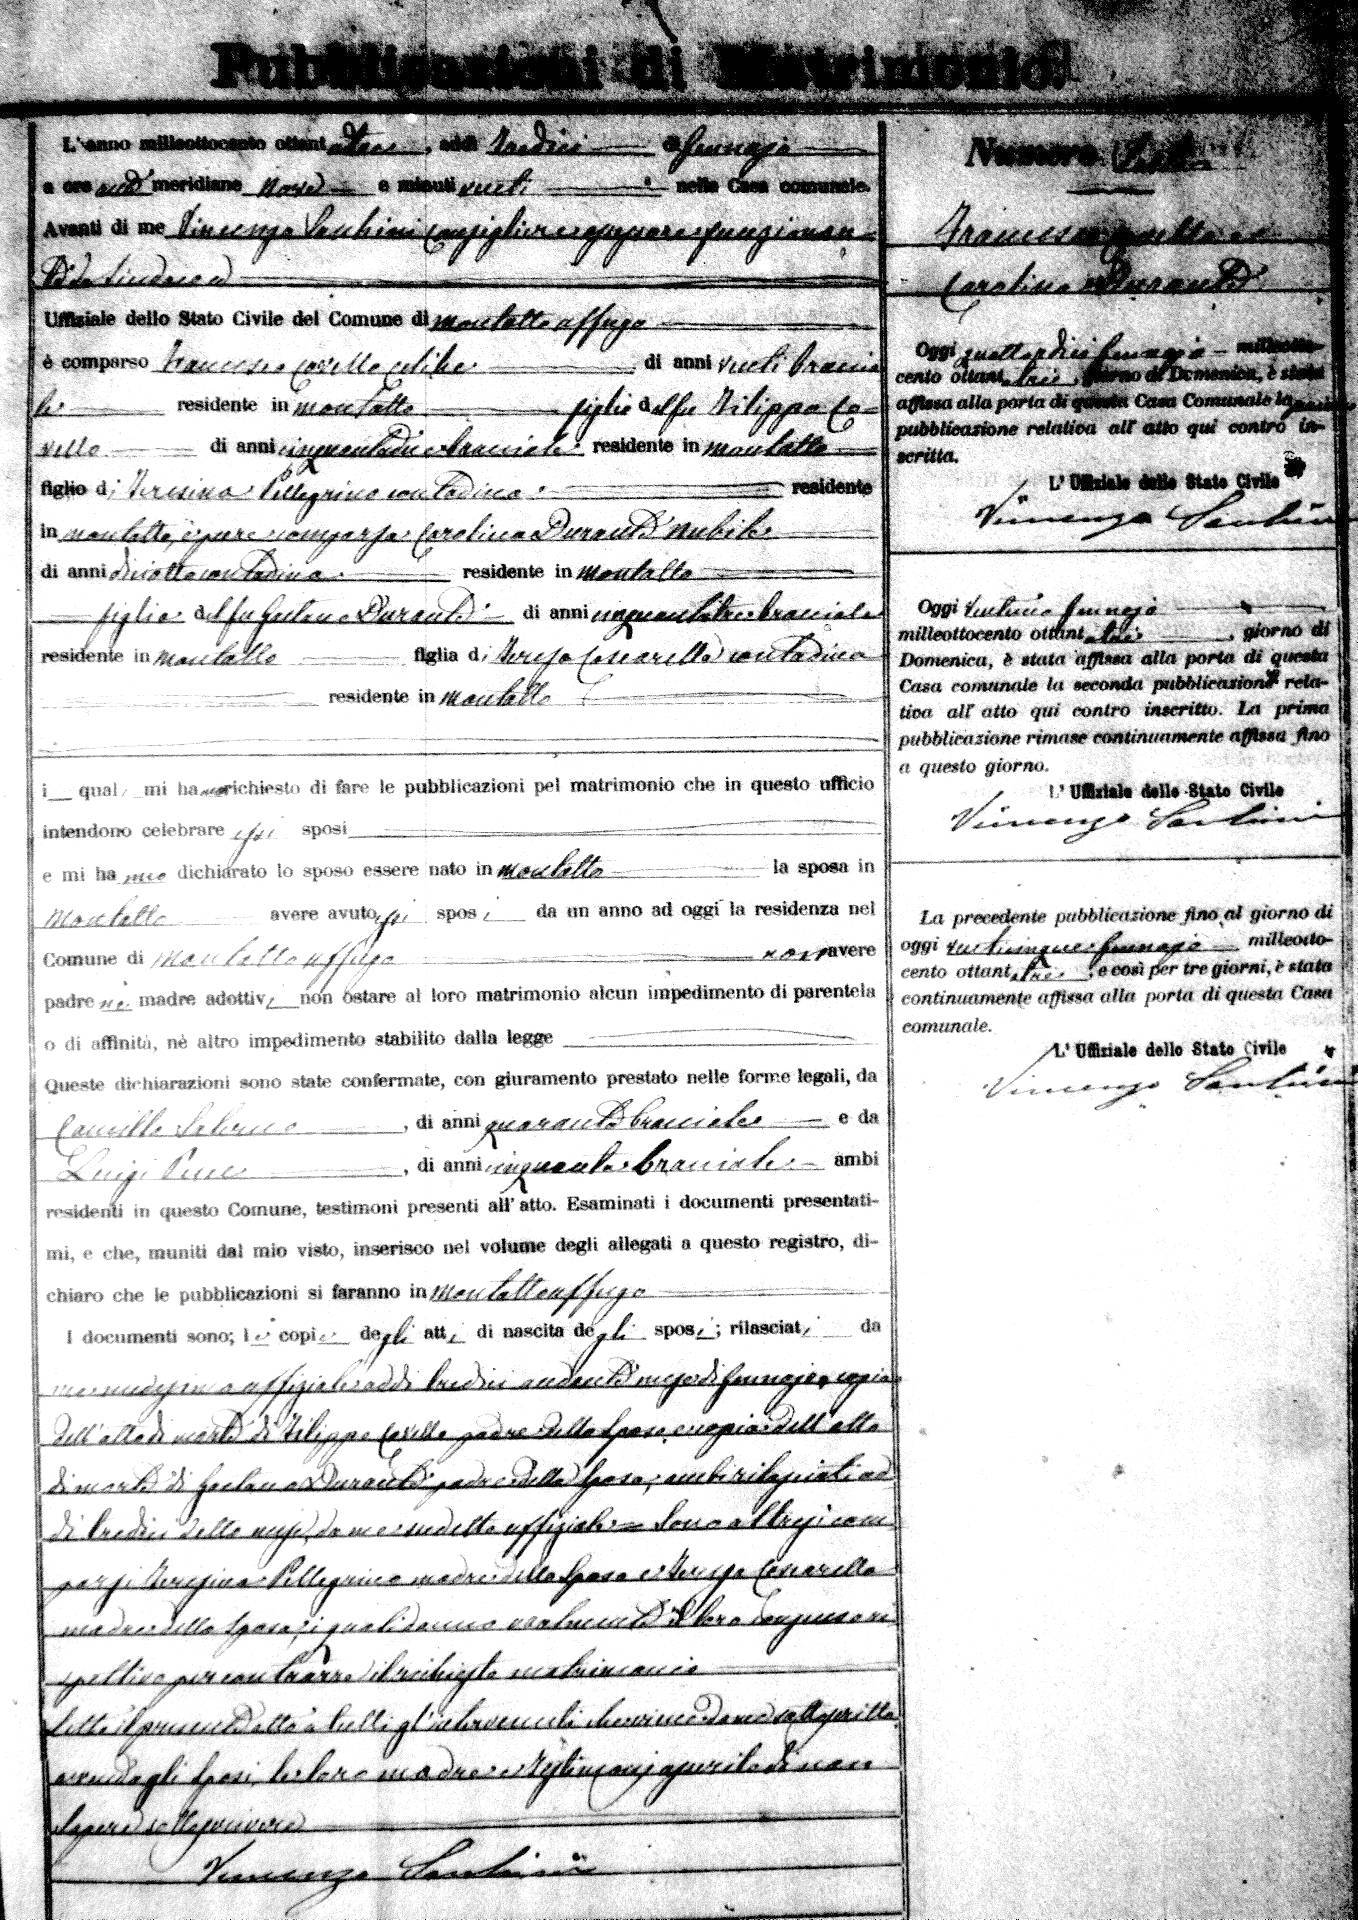 Pubblicazioni di Matrimonio.
L'anno milleottocento ottantatre, addì tredici di Gennajo
a ore anti meridiane nove e minuti venti nella Casa comunale.
Avanti di me Vincenzo Santini Consigliere funzionan-
te da Sindaco
Uffiziale dello Stato Civile del Comune di Montalto Uffugo
è comparso Francesco Covello celibe di anni venti braccia
le residente in Montalto figlio del fu Filippo Co-
vello di anni cinquantadue bracciale residente in Montalto
figlio di Teresina Pellegrino contadina residente
in Montalto, è pure comparsa Carolina Durante nubile
di anni diciotto contadina residente in Montalto
figlia del fu Gaetano Durante di anni cinquantatre bracciale
residente in Montalto figlia di Teresa Coscarella contadina
residente in Montalto
i quali mi hanno richiesto di fare le pubblicazioni pel matrimonio che in questo ufficio
intendono celebrare essi sposi
e mi hanno dichiarato lo sposo essere nato in Montalto la sposa in
Montalto avere avuto essi sposi da un anno ad oggi la residenza nel
Comune di Montalto Uffugo non avere
padre nè madre adottivi non ostare al loro matrimonio alcun impedimento di parentela
o di affinità, nè altro impedimento stabilito dalla legge
Queste dichiarazioni sono state confermate, con giuramento prestato nelle forme legali, da
Camillo Salerno, di anni quaranta bracciale e da
Luigi, di anni cinquanta bracciale ambi
residenti in questo Comune, testimoni presenti all'atto. Esaminati i documenti presentati-
mi, e che, muniti dal mio visto, inserisco nel volume degli allegati a questo registro, di-
chiaro che le pubblicazioni si faranno in Montalto Uffugo
I documenti sono; le copie degli atti di nascita degli sposi; rilasciati da
me medesimo uffiziale addì tredici andante mese di Gennajo, copia
dell'atto di morte di Filippo Covello padre dello sposo, e copia dell'atto
di morte di Gaetano Durante padre della sposa, ambi rilasciati ad
dì tredici detto mese, da me sudetto uffiziale = Sono altresì com
parse Teresina Pellegrino madre dello sposo e Teresa Coscarella
madre della sposa, i quali danno oralmente il loro consenso ri
spettivo per contrarre il richiesto matrimonio
Letto il presente atto a tutti gl'intervenuti che viene da me sottoscritto
avendo gli sposi, le loro madre e testimoni asserito di non
sapere sottoscrivere
Vincenzo Santini
Numero
Francesco Covello e
Carolina Durante
Oggi quattordici Gennajo milleotto-
cento ottantatre, giorno di Domenica, è stata
affissa alla porta di questa Casa Comunale la prima
pubblicazione relativa all'atto qui contro in-
scritta.
L'Uffiziale dello Stato Civile
Vincenzo Santini
Oggi ventuno Gennajo
milleottocento ottantatre, giorno di
Domenica, è stata affissa alla porta di questa
Casa comunale la seconda pubblicazione rela-
tiva all'atto qui contro inscritto. La prima
pubblicazione rimase continuamente affissa fino
a questo giorno.
L'Uffiziale dello Stato Civile
Vincenzo Santini
La precedente pubblicazione fino al giorno di
oggi venticinque Gennajo milleotto-
cento ottantatre, e così per tre giorni, è stata
continuamente affissa alla porta di questa Casa
comunale.
L'Uffiziale dello Stato Civile
Vincenzo Santini